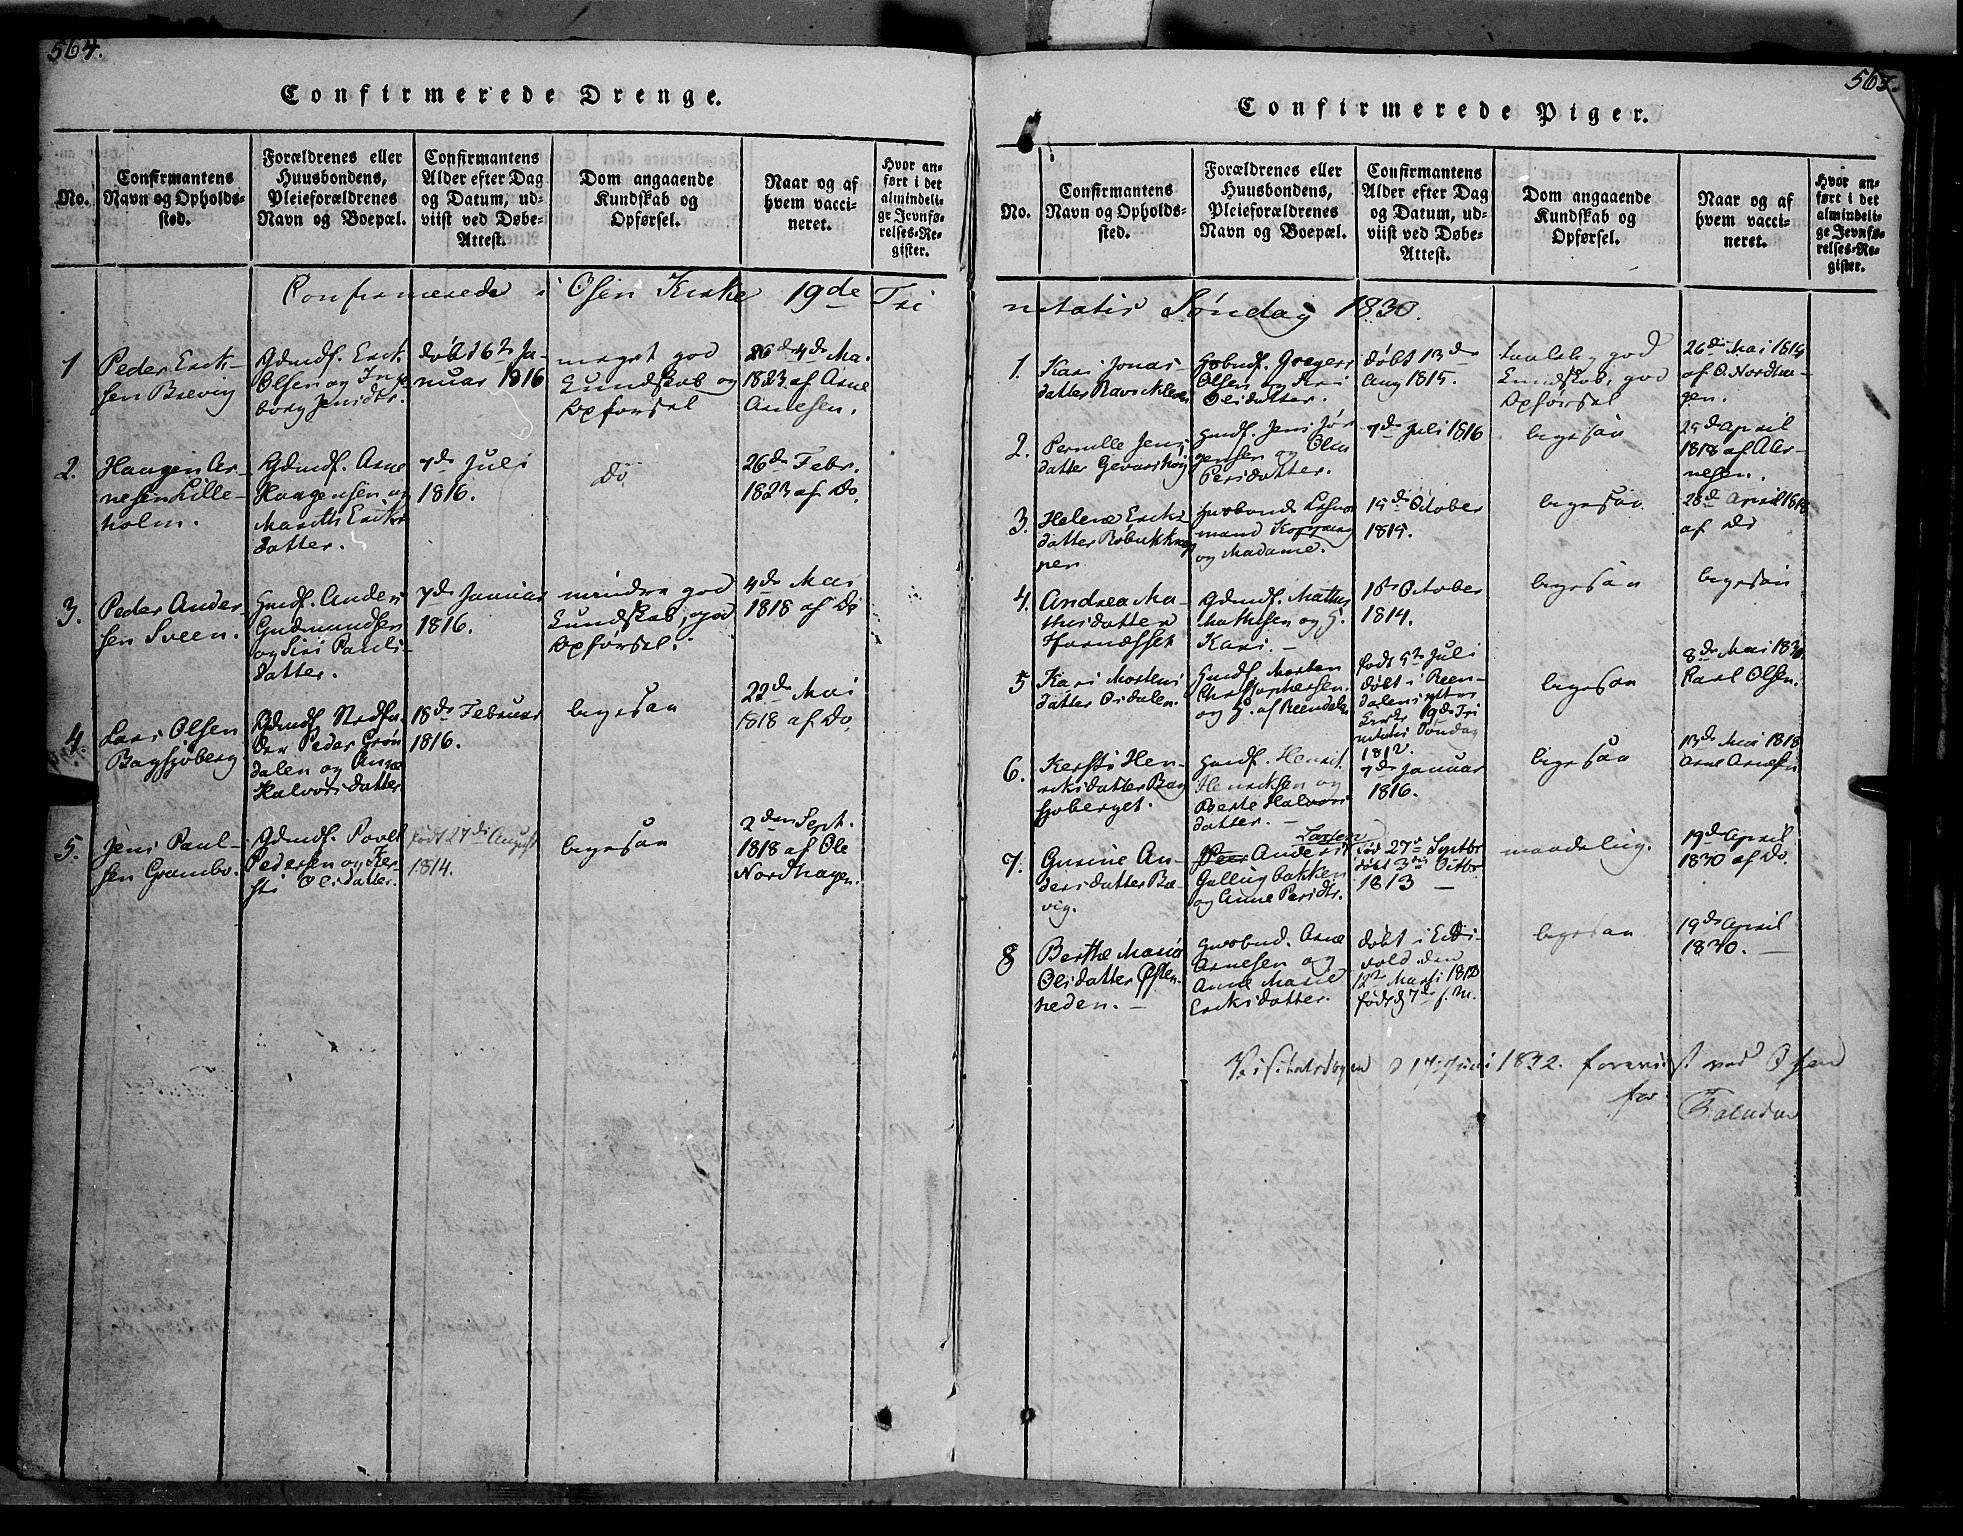 564.
Confirmerede Drenge.
No.
Confirmantens
Navn og Opholds-
sted.
Forældrenes eller
Huusbondens,
Pleieforældrenes
Navn og Boepæl.
Confirmantens
Alder efter Dag
og Datum, ud-
viist ved Døbe-
Attest.
Dom angaaende
Kundskab og
Opførsel.
Naar og af
hvem vacci-
neret.
Hvor an-
ført i det
almindeli-
ge Jevnfø-
relses-Re-
gister.
Confirmerede i Osen Kirke 19de Tri
1
Peder Erik-
sen Brevig
Gdmd. Erik
Olsen og Inge
borg Jensdtr.
døbt 16de Ja-
nuar 1816
meget god
Kundskab og
Opførsel
26de Ma.
1823 af Arne
Arnesen.
2.
Haagen Ar-
nesen Lille-
holm.
Gdmd. Arne
Haagensen og
Marith Eriks
datter.
7de Juli
1816.
do
26de Febr.
1823 af Do.
3.
Peder Ander-
sen Sveen.
Gmd. Anders
Gudmundsen
og Siri Pauls-
datter.
7de Januar
1816.
mindre god
Kundskab, god
Opførsel.
4de Mai
1818 af Do
4.
Lars Olsen
Bagsjøberg
Gdmd. Stedfa-
der Peder Grøn
dalen og Anne
Halvorsdatter
18de Februar
1816.
ligesaa
22de Mai
1818 af Do.
5.
Jens Paul-
sen Grambo.
Gdmd. Povel
Pedersen og Ker-
sti Olsdatter.
født 27de August
1814.
ligesaa
2den Sept.
1818 af Ole
Nordhagen.
565.
Confirmerede Piger.
No.
Confirmantens
Navn og Opholds-
sted.
Forældrenes eller
Huusbondens,
Pleieforældrenes
Navn og Boepæl.
Confirmantens
Alder efter Dag
og Datum, ud-
viist ved Døbe-
Attest.
Dom angaaende
Kundskab og
Opførsel.
Naar og af
hvem vacci-
neret.
Hvor an-
ført i det
almindeli-
ge Jevnfø-
relses-Re-
gister.
nitatis Søndag 1830.
1.
Kari Jonas-
datter
Gregers
Olsen og Siri
Olsdatter.
døbt 13de
Aug 1815.
taalelig god
Kundskab, god
Opførsel
26de Mai 1819
af O. Nordha-
gen.
2.
Pernille Jens
datter
Gmd. Jens Jør
gensen og Olia
Persdatter.
7de Juli 1816
ligesaa
25de April
1818 af A. Ar-
nesen.
3.
Helene Eriks
datter
Huusbonde Lehns
mand Koppang
og Madame.
15de October
1815.
ligesaa
28de April 1818
af Do
4.
Andrea Ma-
thisdatter
Hornæsset
Gdmd. Mathis
Mathisen og H.
Kari. -
1ste October
1814.
ligesaa
ligesaa
5
Kari Mortens
datter Osdalen.
Gmd. Morten
Christophersen
og H. af Reendalen
født 5te Juli
døbt i Reen-
dalens ytter
Kirke 19de Tri
nitatis Søndag
1812.
ligesaa
8de Mai 1830
Karl Olsen.
6.
Kersti Hen-
riksdatter Bag
sjøberget.
Gmd. Henrik
Henriksen og
Berte Halvors
datter. -
7de Januar
1816.
ligesaa
13de Mai 1818
Arne Arnesen
7.
Gurine An-
dersdatter Bæ-
vig.
Larsen
Peer Anders
Gullugbakken
og Anne Persdtr.
fød 27de Septbr
døbt 3die Octbr
1813 -
maadelig.
19de April
1830 af Do.
8
Berthe Maria
Olsdatter Østen-
heden. -
Huusbnd. Arne
Arnesen og
Anne Marie
Eriksdatter.
døbt i Eids-
vold den
12te Marsi 1813
født d 7de s. M.
ligesaa
19de April
1830. -
Visitatsdagen d 17 Juni 1832. foreviist ved Osen
for